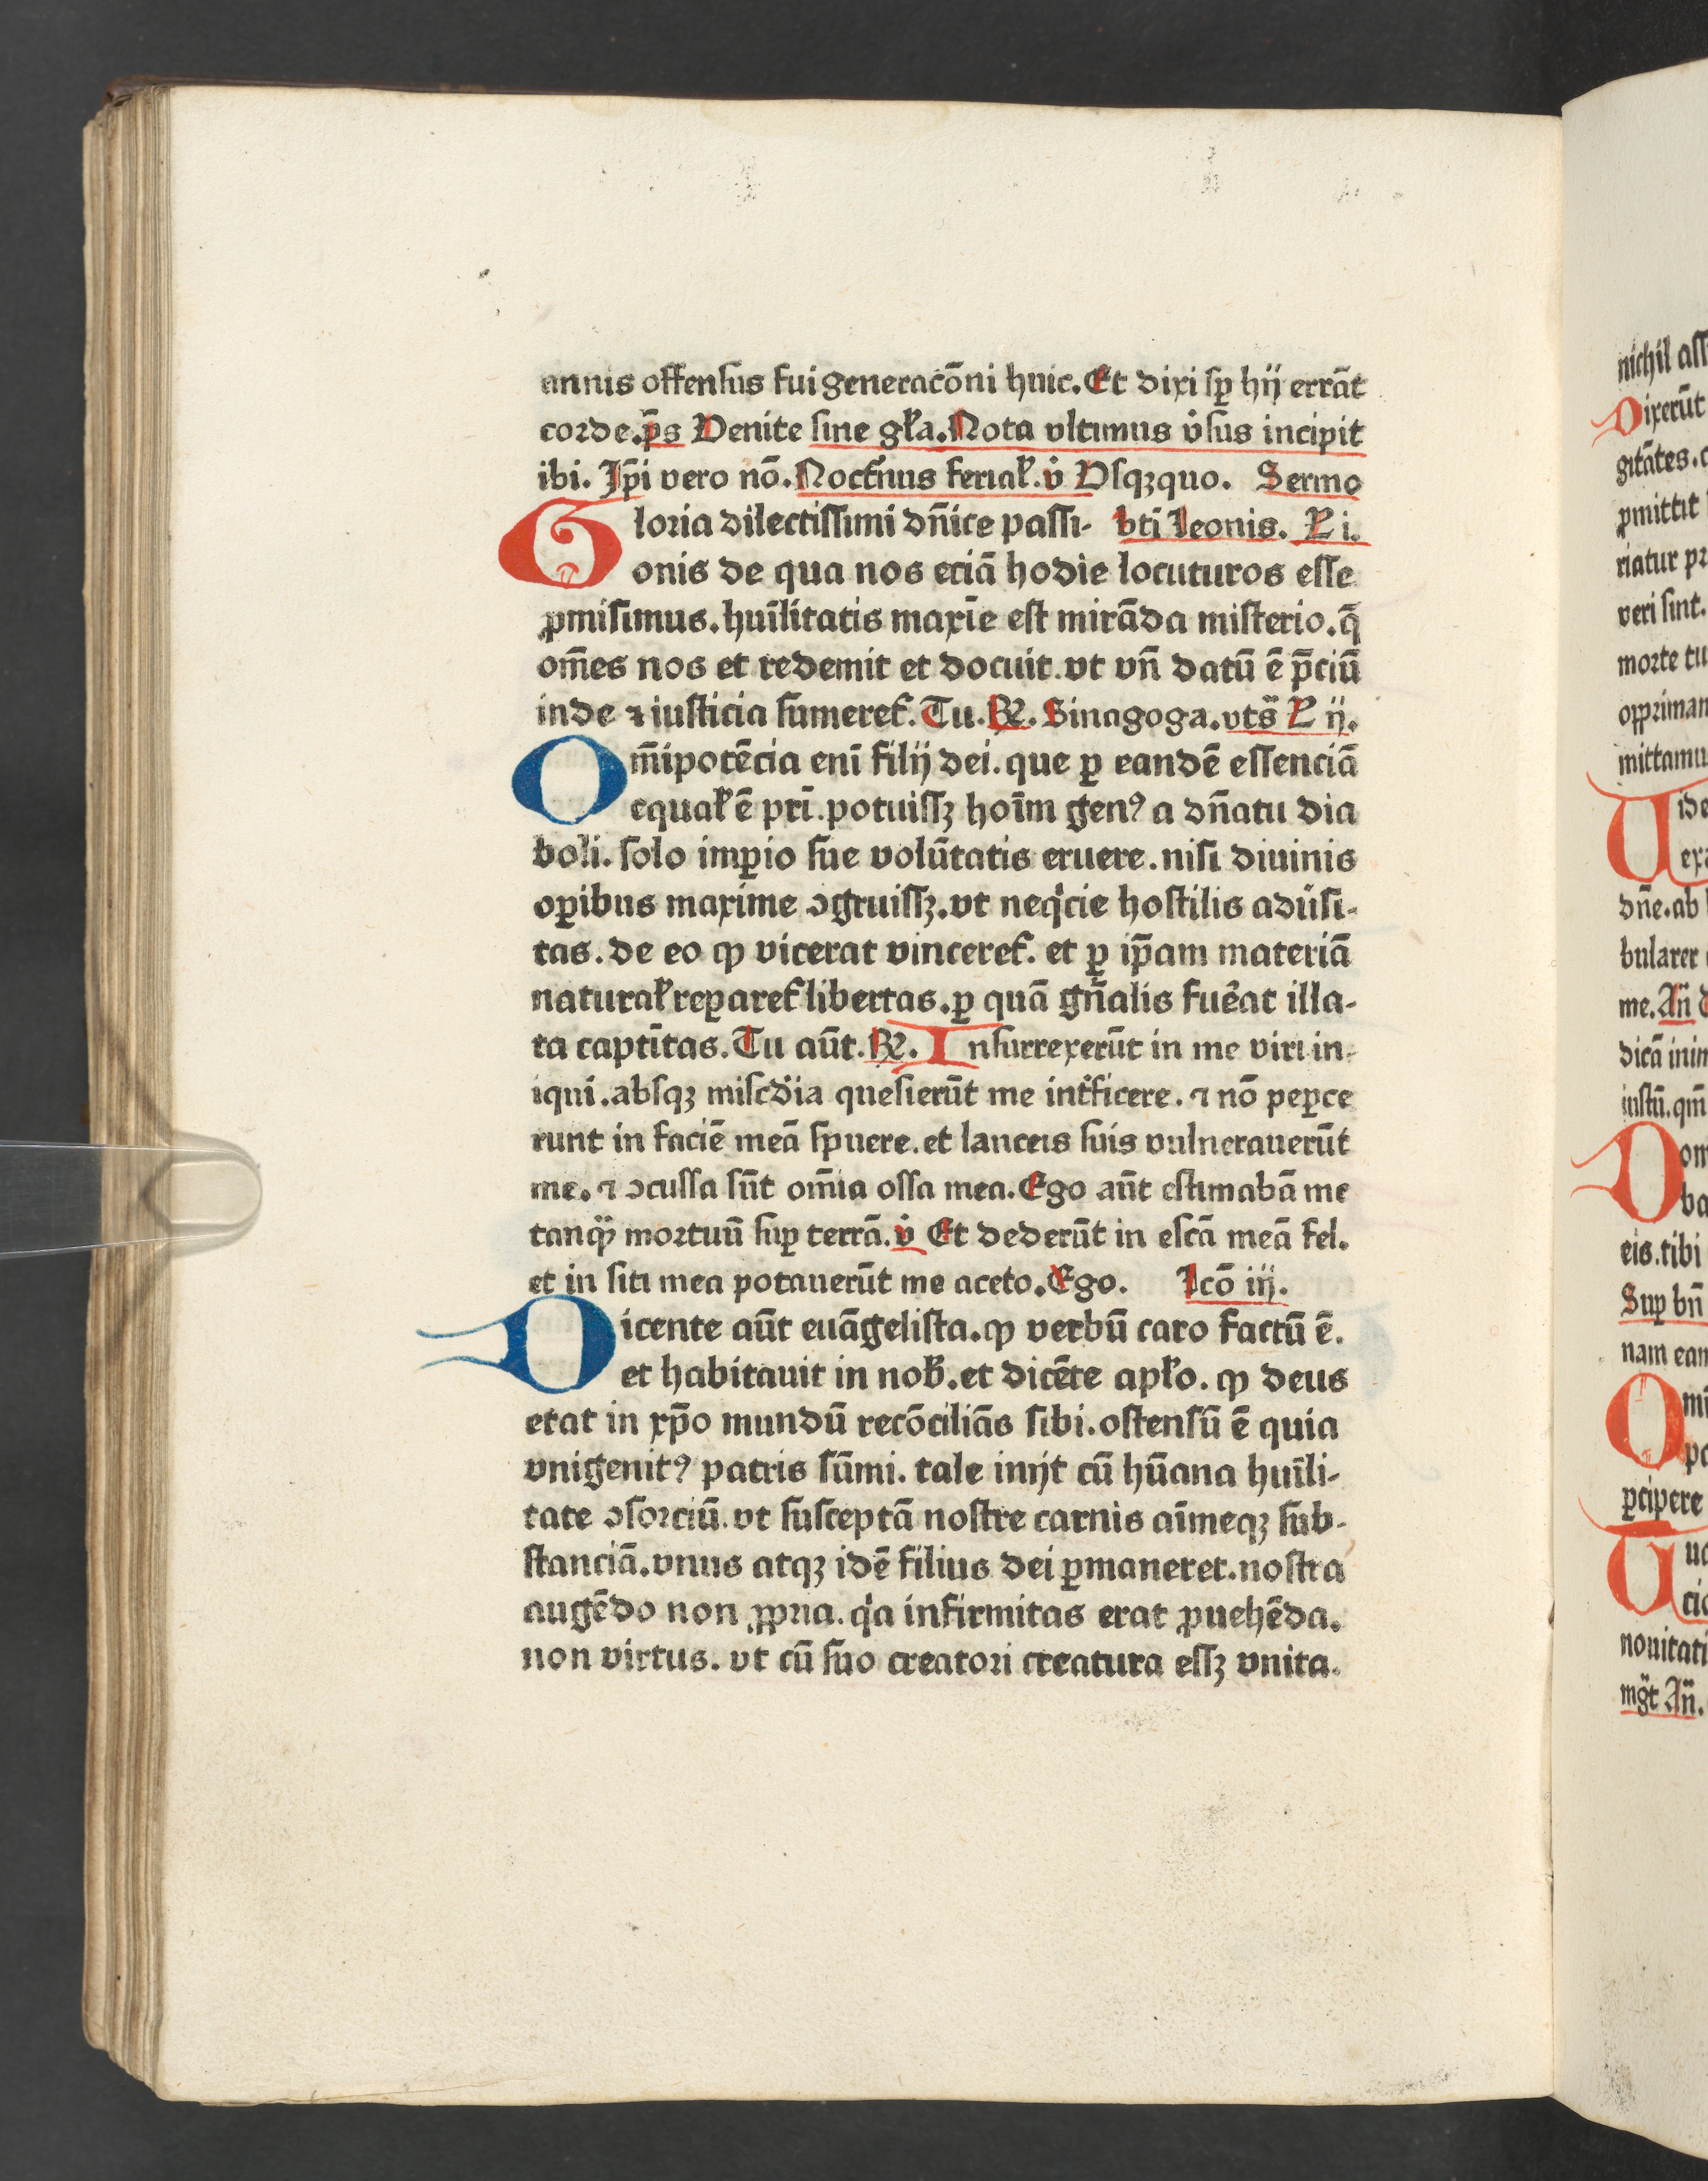 annis offensus fui generacōni huic. Et dixi sꝑ hij errāt
corde. p̄s Venite sine gła. Nota vltimus v̇sus incipit
ibi. Jp̄i vero nō. Nocťnus ferial̕. v̇ Vsqꝫquo. Sermo
Gloria dilectissimi dn̄ice passi- bt̄i Leonis. L̕ i.
onis de qua nos eciā hodie locuturos esse
ꝓmisimus. huīlitatis maxīe est mirāda misterio. q̄
om̄es nos et redemit et docuit. vt vn̄ datū ē p̄ciū
inde ⁊ iusticia sumeret̕. Tu. ℟. Sinagoga. vts̄ L̕ ij.
Om̄ipotēcia enī filij dei. que ꝑ eandē essenciā
equal̕ ē pr̄i. potuissꝫ hoīm genꝰ a dn̄atu dia
boli. solo imꝑio sue volūtatis eruere. nisi diuinis
oꝑibus maxime ↄgruissꝫ. vt neqͥcie hostilis adūsi-
tas. de eo ꝙ vicerat vinceret̕. et ꝑ ip̄am materiā
natural̕ reꝑaret̕ libertas. ꝑ quā gn̄alis fuēat illa-
ta captītas. Tu aūt. ℟. Insurrexerūt in me viri in-
iqui. absqꝫ misc̄dia quesierūt me int̄ficere. ⁊ nō peꝑce
runt in faciē meā spuere. et lanceis suis vulnerauerūt
me. ⁊ ↄcussa sūt om̄ia ossa mea. Ego aūt estimabā me
tanqͣꝫ mortuū suꝑ terrā. v̇ Et dederūt in escā meā fel.
et in siti mea potauerūt me aceto. Ego. Lcō iij.
Dicente aūt euāgelista. ꝙ verbū caro factū ē.
et habitauit in nob̕. et dicēte apl̕o. ꝙ deus
erat in xp̄o mundū recōciliās sibi. ostensū ē quia
vnigenitꝰ patris sūmi. tale inijt cū hūana huīli-
tate ↄsorciū. vt susceptā nostre carnis aīmeqꝫ sub-
stanciā. vnus atqꝫ idē filius dei ꝑmaneret. nostra
augēdo non ꝓpria. qͥa infirmitas erat ꝓuehēda.
non virtus. vt cū suo creatori creatura essꝫ vnita.
nichil ass
Dixerūt
gitātes. c
ꝑmittit
riatur pr
veri sint.
morte tu
oꝑpriman
mittamu
Uide
exa
dn̄e. ab
bularer
me. An̄
dicā inim
iustū. qm̄
Dom
ba
eis. tibi
Suꝑ bn̄
nam eam
Omi
pa
ꝑcipere
U
cio
nouitati
An̄.